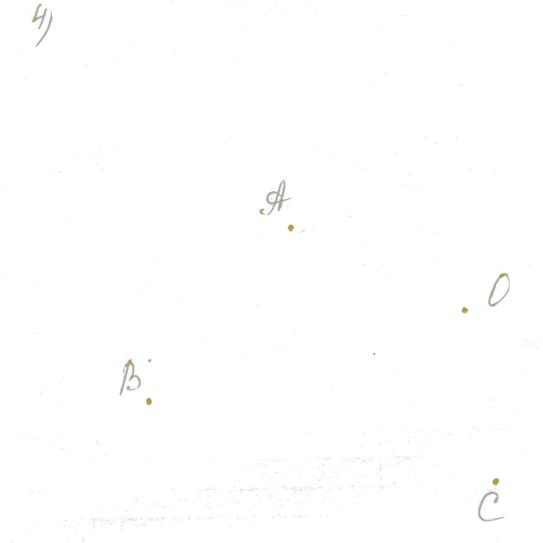 4)
A
O
B
C